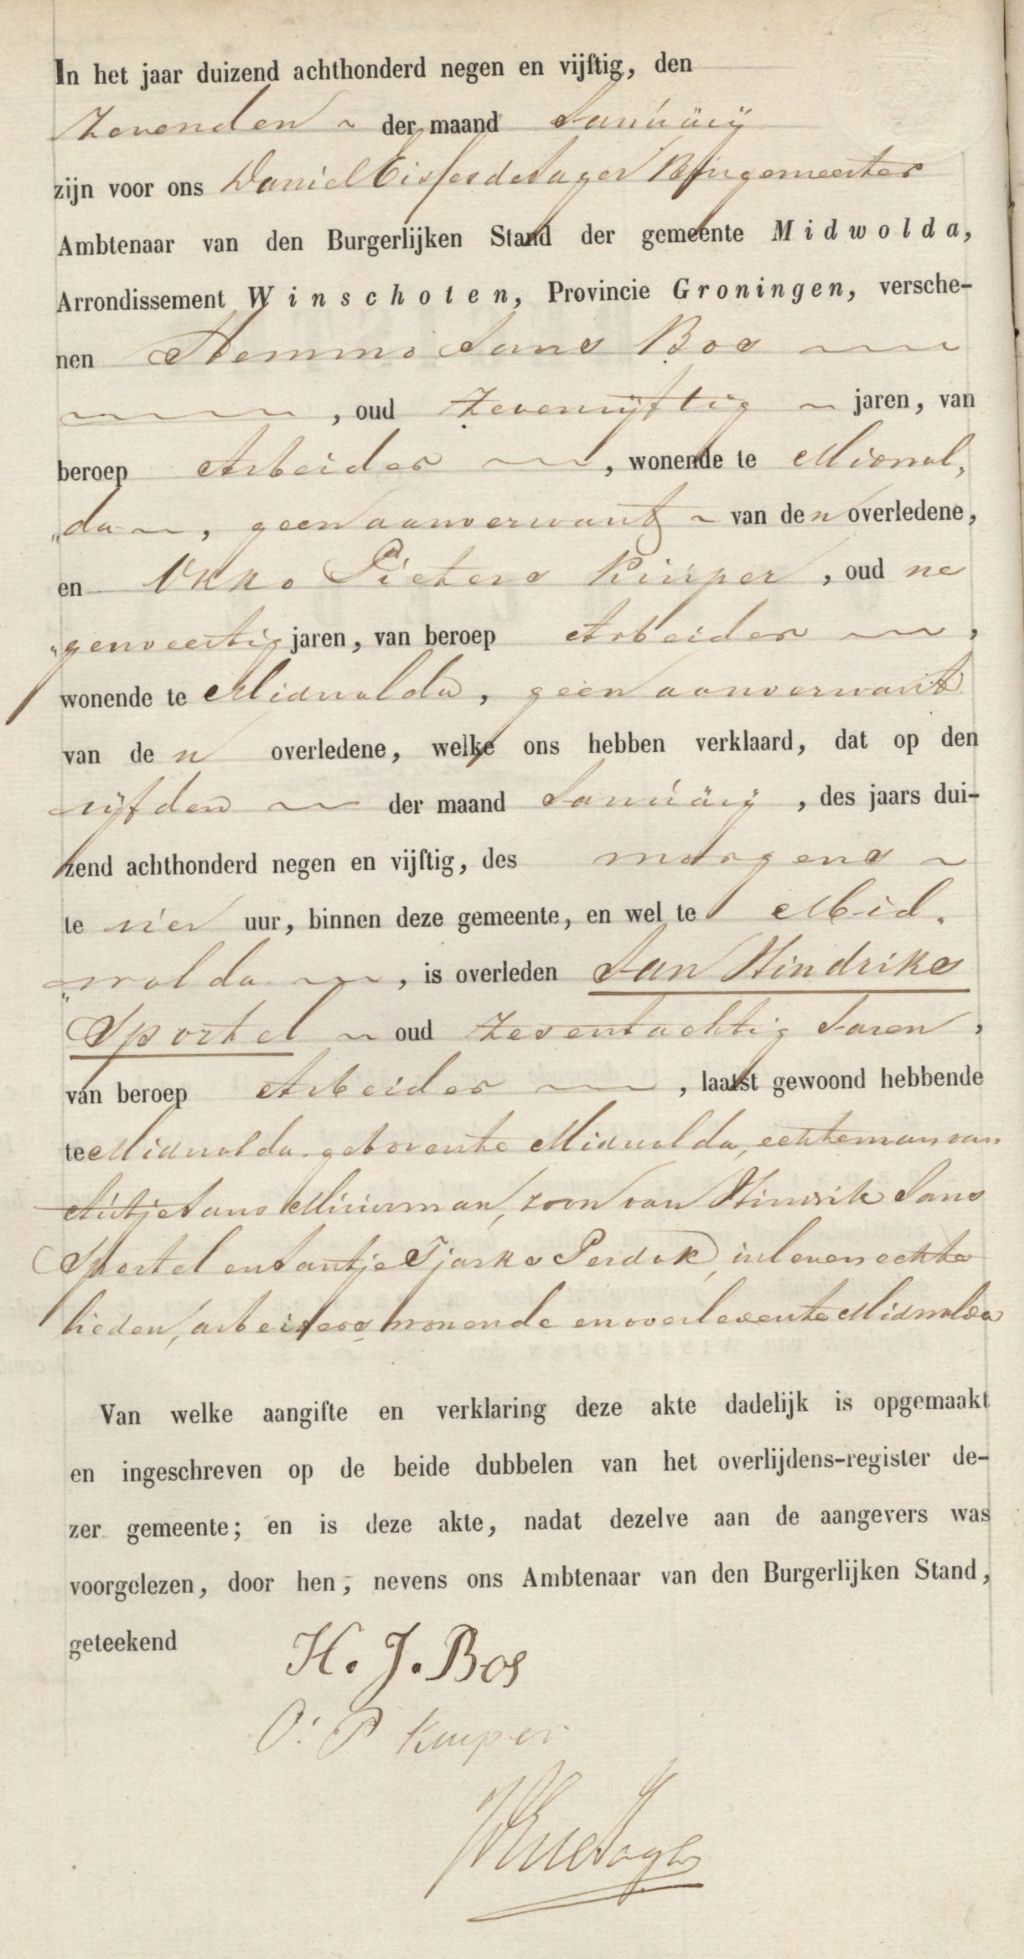 In het jaar duizend achthonderd negen en vijftig, den
zevenden ~ der maand Januarij
zijn voor ons Daniel de Jager Burgemeester
Ambtenaar van den Burgerlijken Stand der gemeente Midwolda,
Arrondissement Winschoten, Provincie Groningen, versche-
nen Hemmo Jans Bos
, oud zevenvijftig ~ jaren, van
beroep Arbeider , wonende te Midwol„
„da ~, geen aanverwant ~ van den overledene,
en Okko Pieters Kuiper, oud ne
„genveertig jaren, van beroep Arbeider ,
wonende te Midwolda, geen aanverwant
van de n overledene, welke ons hebben verklaard, dat op den
vijfden der maand Januarij, des jaars dui-
zend achthonderd negen en vijftig, des morgens ~
te vier uur, binnen deze gemeente, en wel te Mid„
„wolda , is overleden Jan Hindriks
Sportel ~ oud zesentachtig Jaren,
van beroep Arbeider , laatst gewoond hebbende
te Midwolda geboren te Midwolda, echteman van
Jans zoon van Hindrik Jans
Sportel en Jantje Tjarks Perdok, in leven echte
lieden, arbeiders, wonende en overleden te Midwolda
Van welke aangifte en verklaring deze akte dadelijk is opgemaakt
en ingeschreven op de beide dubbelen van het overlijdens-register de-
zer gemeente; en is deze akte, nadat dezelve aan de aangevers was
voorgelezen, door hen, nevens ons Ambtenaar van den Burgerlijken Stand,
geteekend H. J. Bos
O. P Kuiper
deJager